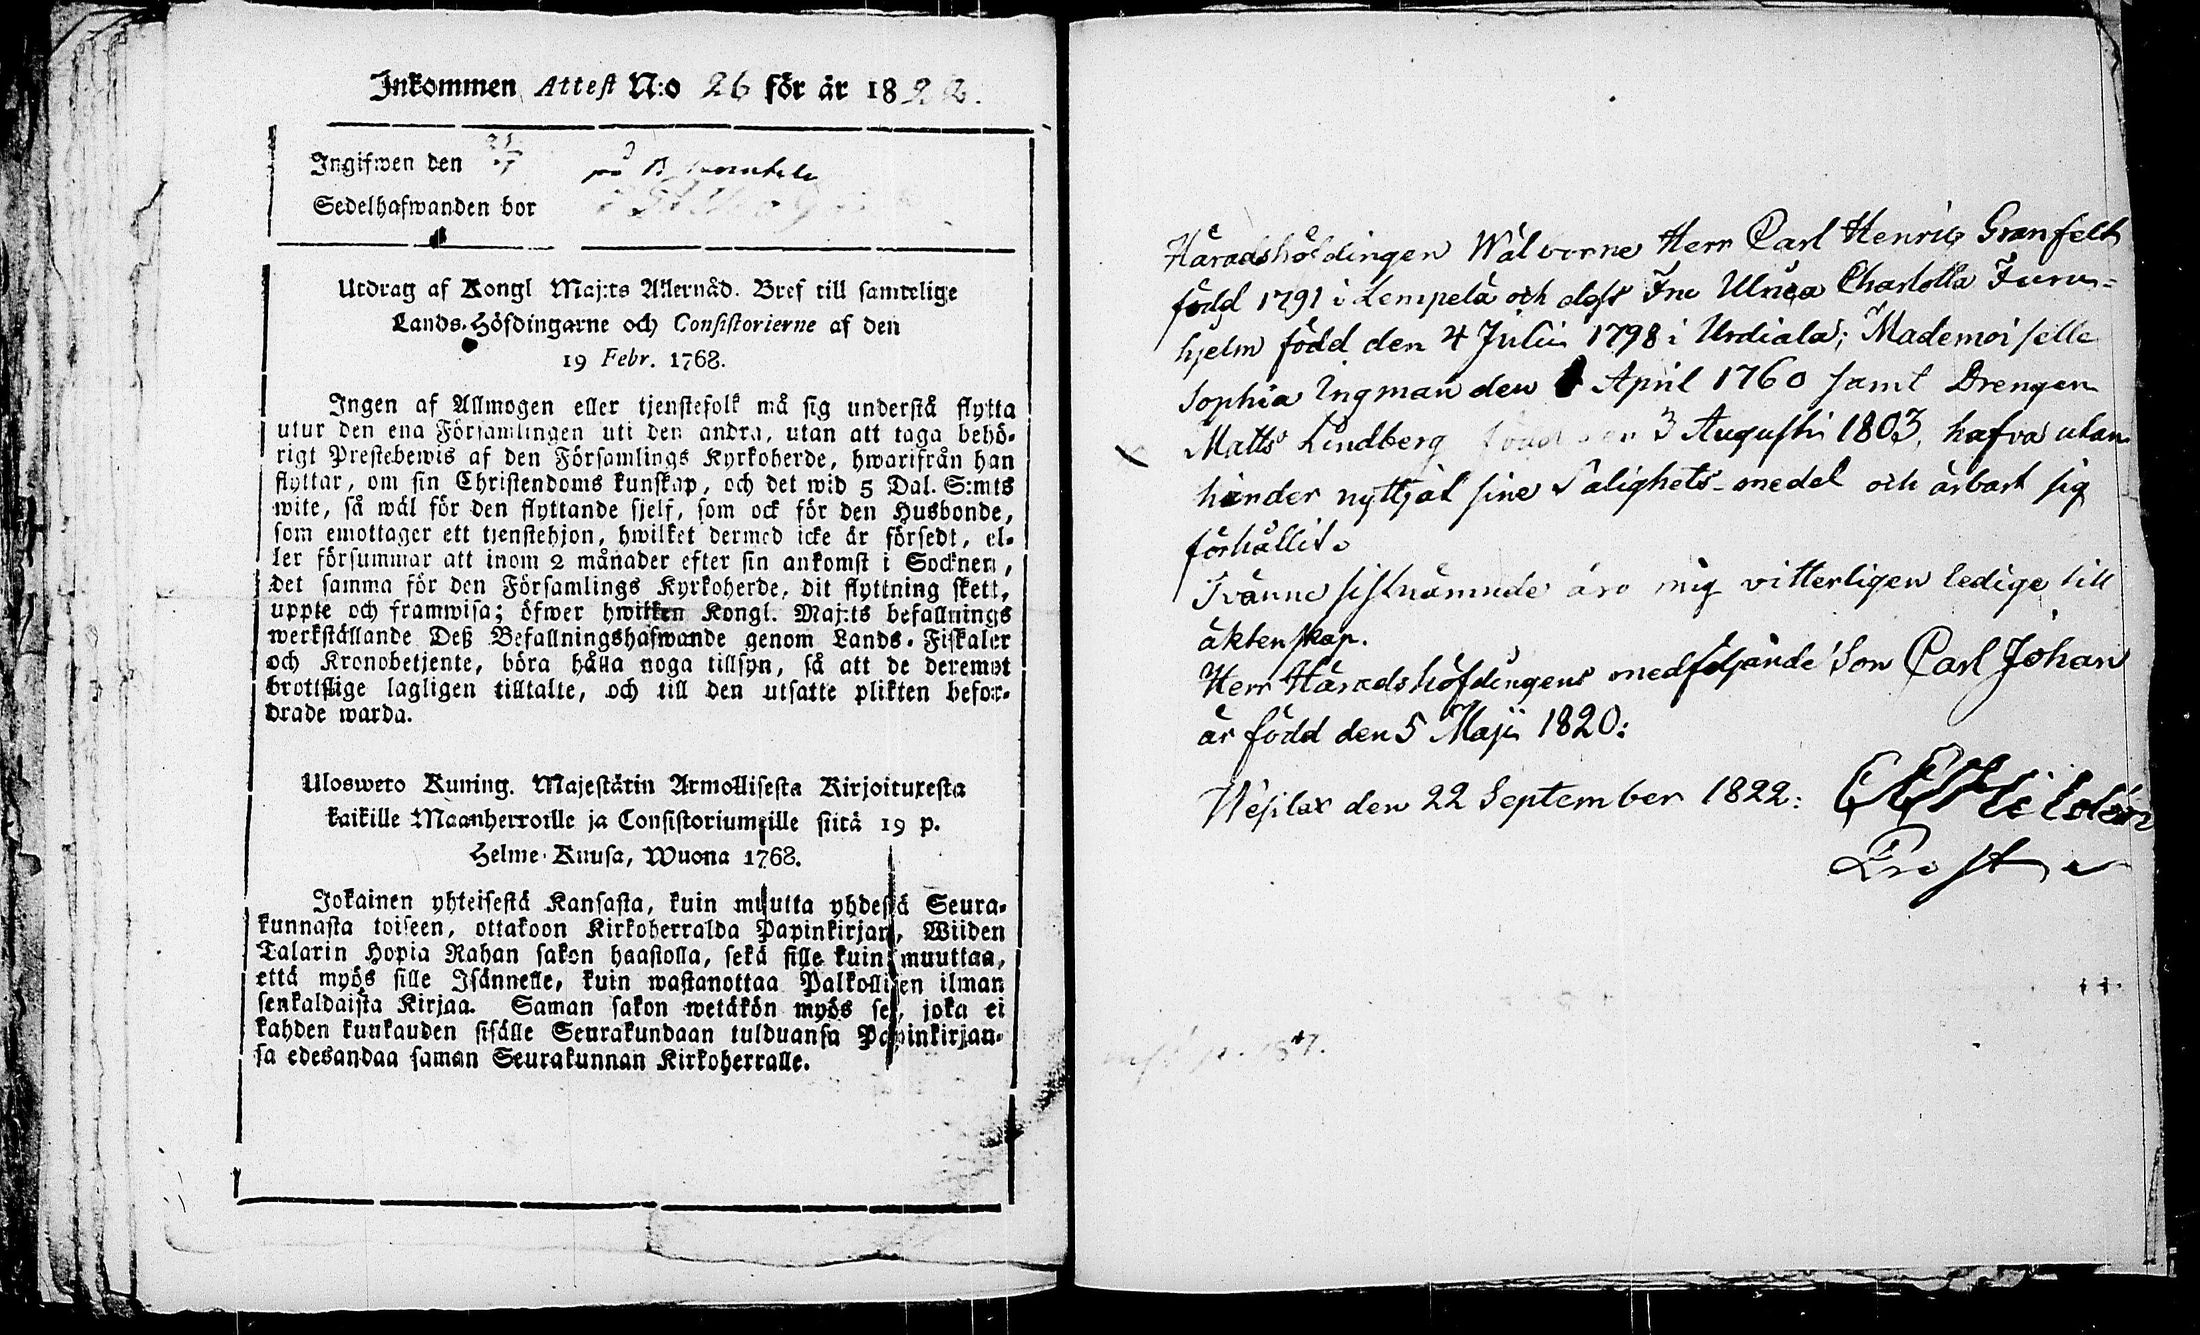 Inkommen Attest N:o 26 för år 1822.
Ingifwen den
på
Sedelhafwanden bor
Utdrag af Kongl Maj:ts Allernåd. Bref till samtelige
Lands-Höfdingarne och Consistorierne af den
19 Febr. 1768.
Ingen af Allmogen eller tjenstefolk må sig understå flytta
utur den ena Församlingen uti den andra, utan att taga behö-
rigt Prestebewis af den Församlings Kyrkoherde, hwarifrån han
flyttar, om sin Christendoms kunskap, och det wid 5 Dal. S:mts
wite, så wäl för den flyttande sjelf, som ock för den Husbonde,
som emottager ett tjenstehjon, hwilket dermed icke är försedt, el-
ler försummar att inom 2 månader efter sin ankomst i Socknen,
det samma för den Församlings Kyrkoherde, dit flyttning skett,
uppte och framwisa; öfwer hwilken Kongl. Maj:ts befallnings
werkställande Deß Befallningshafwande genom Lands-Fiskaler
och Kronobetjente, böra hålla noga tillsyn, så att de deremot
brottslige lagligen tilltalte, och till den utsatte plikten befor-
drade warda.
Ulosweto Kuning. Majestätin Armollisesta Kirjoituxesta
kaikille Maanherroille ja Consistoriumeille siitä 19 p.
Helme-Kuusa, Wuona 1768.
Jokainen yhteisestä Kansasta, kuin muutta yhdestä Seura-
kunnasta toiseen, ottakoon Kirkoherralda Papinkirjan, Wiiden
Talarin Hopia Rahan sakon haastolla, sekä sille kuin muuttaa,
että myös sille Isännelle, kuin wastanottaa Palkollisen ilman
senkaldaista Kirjaa. Saman sakon wetäkön myös se, joka ei
kahden kuukauden sisälle Seurakundaan tulduansa Papinkirjan-
sa edesandaa saman Seurakunnan Kirkoherralle.
Häradshöfdingen Wälborne Herr Carl Henric Granfelt
född 1791 i Lempelä och dess Fru Ulrica Charlotta Furu-
hjelm född den 4 Julii 1798 i Urdiala; Mademoiselle
Sophia Ingman den April 1760 samt Drengen
Matts Lindberg född den 3 Augusti 1803, hafva utan
hinder nyttjat sine Salighets-medel och ärbart sig
förhållit.
Tvänne sistnämnde äro mig vitterligen ledige till
äktenskap.
Herr Häradshöfdingens medföljande Son Carl Johan
är född den 5 Maji 1820:
Wesilax den 22 September 1822:
Prost